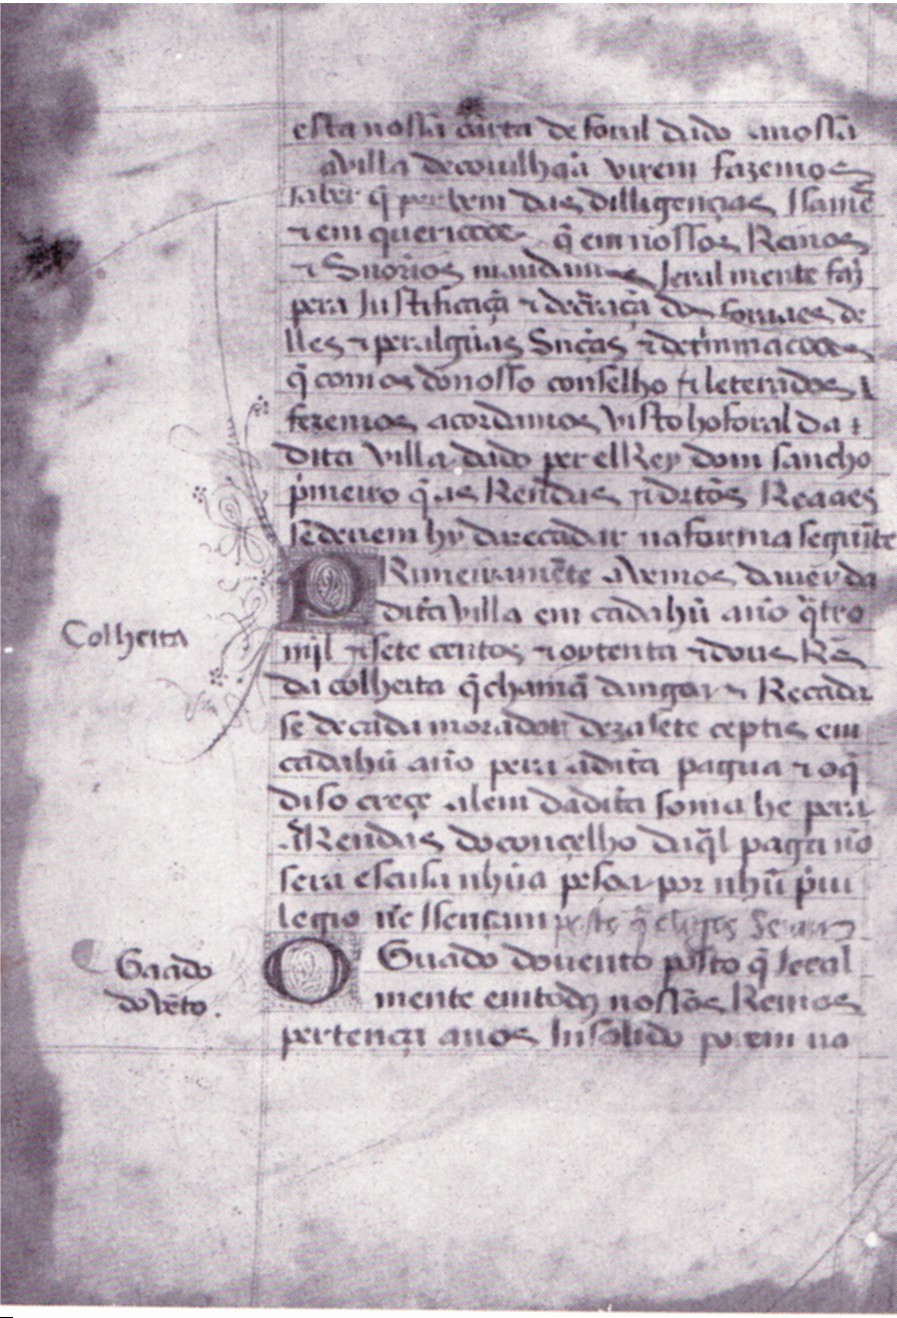 esta nossa carta de foral dado a nossa
avilla de couilhaã virem fazemos
saber q̃ per bem das dilligenças Isamẽ
⁊ em quericoões q̃ em nossos Reinos
⁊ Sñorios mandamos Jeral mente faz̃
pera Justificaçã ⁊ decraraçã dos foraes de
lles ⁊ per algũas Snẽças ⁊ detriminacooẽs
q̃ com os do nosso conselho ⁊ leterados
fezemos acordamos visto ho foral da
dita villa dado per el Rey dom sancho
p̃meiro q̃ as Rendas ⁊ dr̃tos Reaaes
se deuem hy darecadar na forma seguĩte
PRimeiramẽte Avemos daver da
dita villa em cada hũ año q̃tro
mjl ⁊ sete centos ⁊ oytenta ⁊ dous R̃s
da colheita q̃ chamã dangar ⁊ Recada
se de cada morador dezasete ceptis em
cada hũ año pera a dita pagua ⁊ o q̃
diso creçe alem da dita soma he pera
as Rendas do concelho da q̃l paga nõ
sera escusa nhũa pesoa por nhũ p̃ui
legio nẽ Isençam
Colheita
O Guado do uento posto q̃ Jeral
mente em todos nossos Reinos
pertença a nos Insolido porem na
Guado
do vẽto.